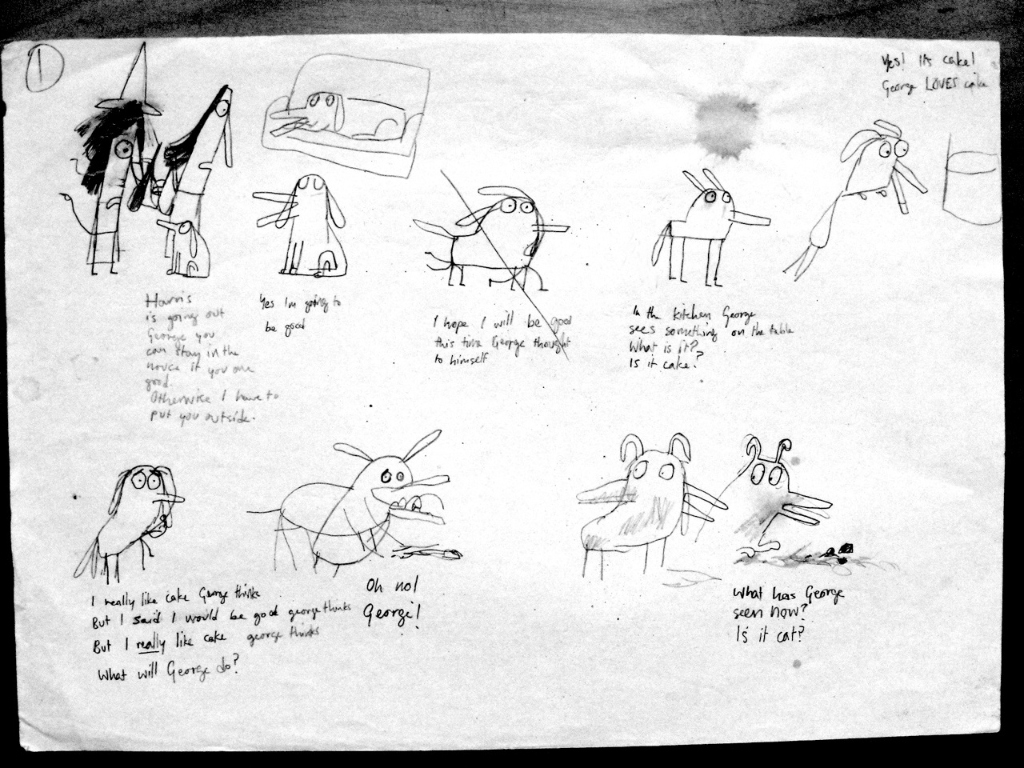 1
Yes! It's cake!
George LOVES cake
Harris
is going out
George you
can stay in the
house if you are
good.
Otherwise I have to
put you outside.
Yes I'm going to
be good
I hope I will be good
this time George thought
to himself
In the kitchen George
sees something on the table
What is it?
Is it cake?
I really like cake George thinks
But I said I would be good george thinks
But I really like cake george thinks
What will George do?
Oh no!
George!
What has George
seen now?
Is it cat?